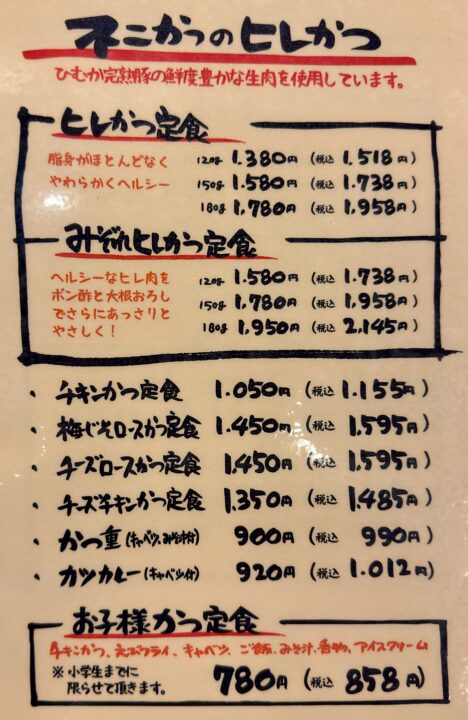 不二かつのヒレかつ
ひむか完熟豚の鮮度豊かな生肉を使用しています。
ヒレかつ定食
脂身がほとんどなく 120g 1.380円 (税込 1.518円)
やわらかくヘルシー 150g 1.580円 (税込 1.738円)
180g 1,780円 (税込 1,958円)
みぞれヒレかつ定食
ヘルシーなヒレ肉を 120g 1.580円 (税込 1.738円)
ポン酢と大根おろし 150g 1,780円 (税込 1.958円)
でさらにあっさりと
やさしく! 180g 1,950円 (税込 2,145円)
・ チキンかつ定食 1.050円 (税込 1.155円)
・ 梅じそロースかつ定食 1.450円 (税込 1,595円)
・ チーズロースかつ定食 1,450円 (税込 1.595円)
・ チーズチキンかつ定食 1.350円 (税込 1,485円)
・ かつ重(キャベツ、みそ汁付) 900円 (税込 990円)
・ カツカレー(キャベツ付) 920円 (税込 1.012円)
お子様かつ定食
チキンかつ、えびフライ、キャベツ、ご飯、みそ汁、香物、アイスクリーム
※小学生までに
限らせて頂きます。 780円 (税込 858円)